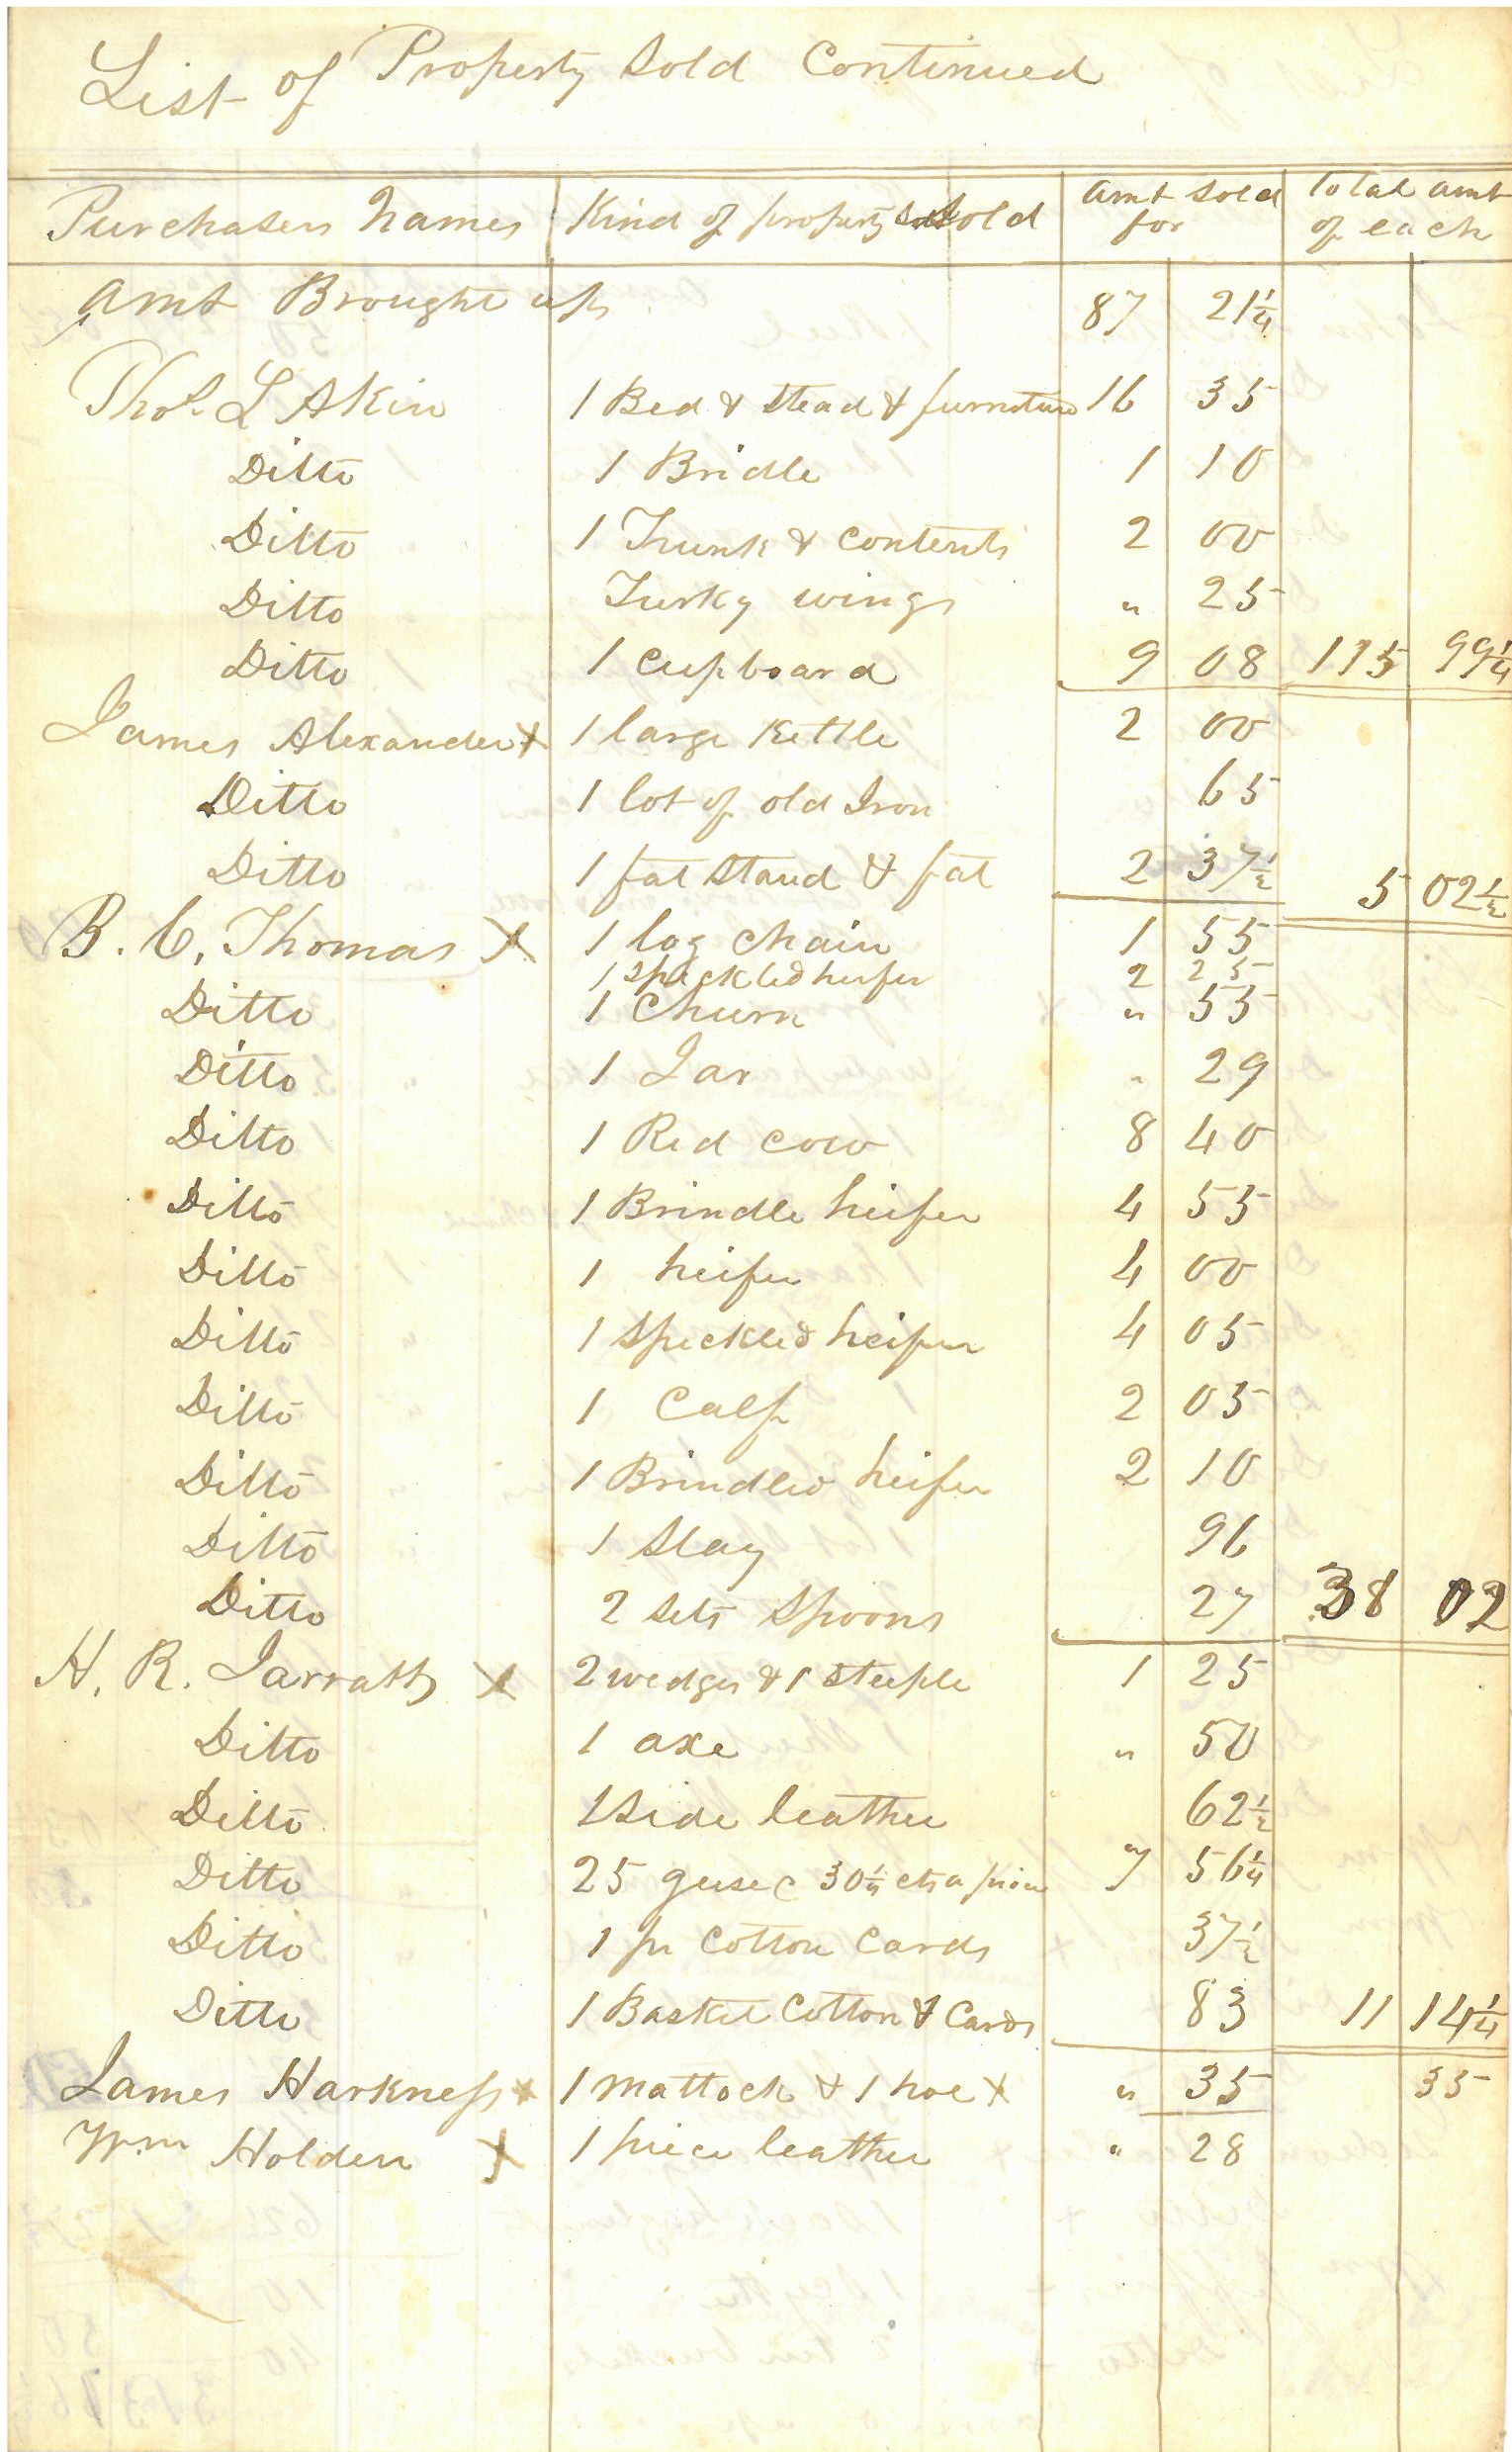 List of Property Sold Continued
Purchasers Names Kind of property Sold Amt Sold for Total Amt of each
Amt Brought up 87 21¼
Thos. L Akin 1 Bed & Stead & furniture 16 35
Ditto 1 Bridle 1 10
Ditto 1 Trunk & Contents 2 00
Ditto Turky wings " 25
Ditto 1 Cupboard 9 08 115 99¼
James Alexander X 1 large Kettle 2 00
Ditto 1 lot of old Iron 65
Ditto 1 fat Stand & fat 2 37½ 5 02½
B. C. Thomas X 1 log Chain 1 55
1 Speckled heifer 2 25
Ditto 1 Churn " 55
Ditto 1 Jar " 29
Ditto 1 Red Cow 8 40
Ditto 1 Brindle heifer 4 55
Ditto 1 heifer 4 00
Ditto 1 Speckled heifer 4 05
Ditto 1 Calf 2 05
Ditto 1 Brindled heifer 2 10
Ditto 1 Slay 96
Ditto 2 Sets Spoons 27 38 02
H. R. Jarratt X 2 wedges & 1 Steeple 1 25
Ditto 1 axe " 50
Ditto 1 Side leather 62½
Ditto 25 geese @ 30¼ cts a piece 7 56¼
Ditto 1 pr Cotton Cards 37½
Ditto 1 Basket Cotton & Cards 83 11 14¼
James Harkness X 1 Mattock & 1 hoe X " 35 35
Wm Holden X 1 piece leather " 28